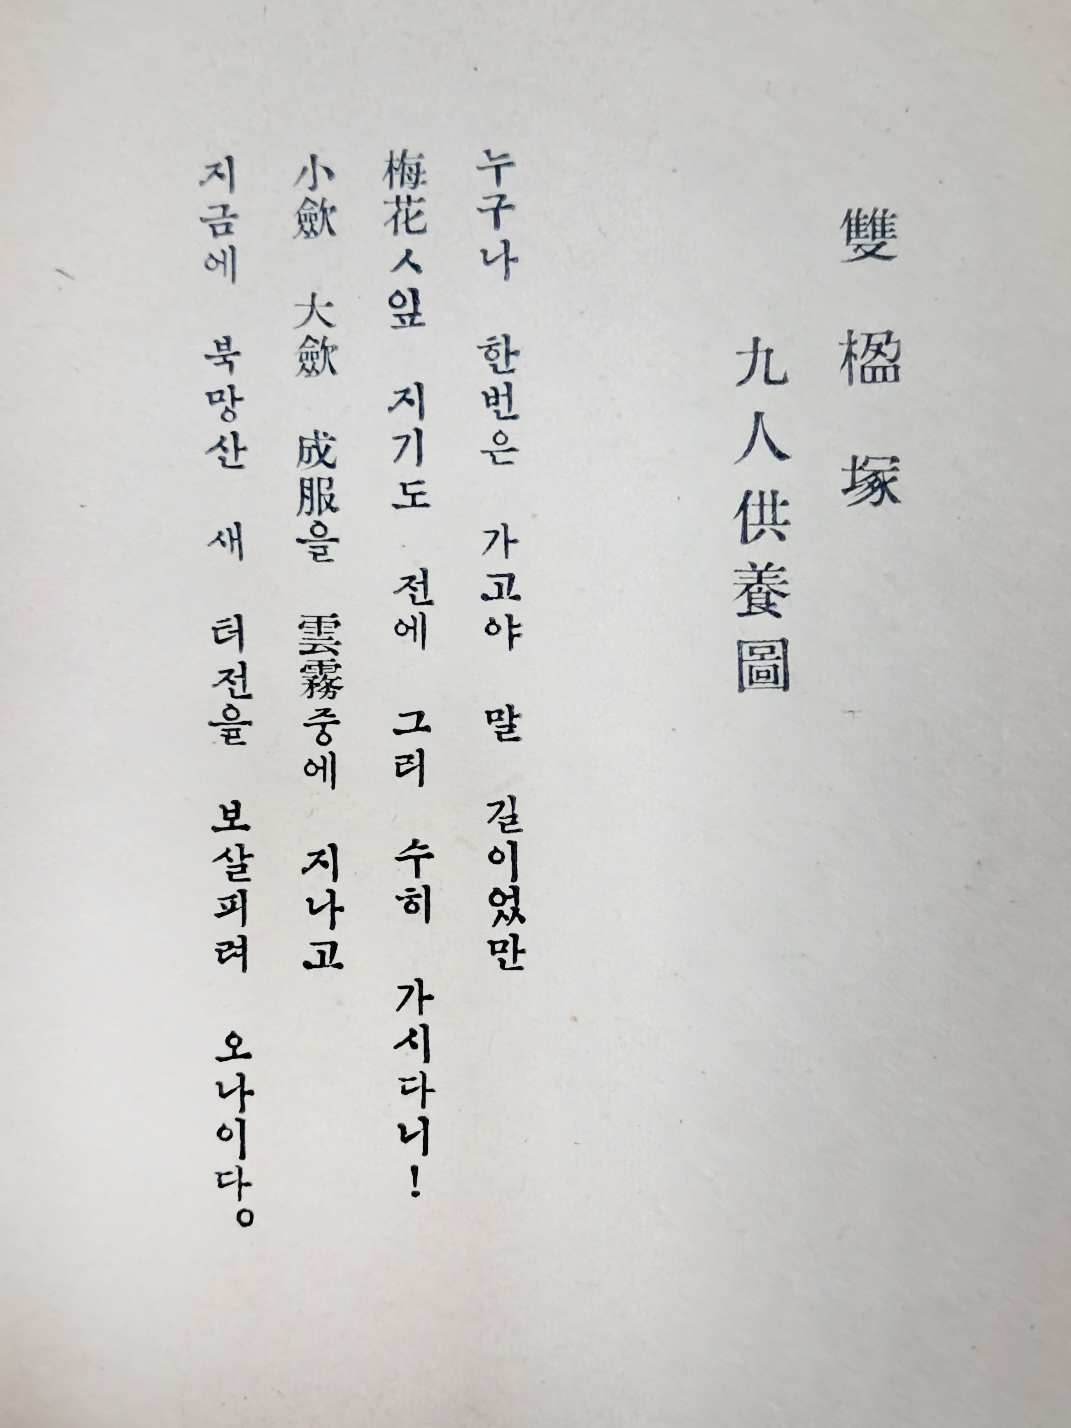 雙楹塚
九人供養圖
누구나 한번은 가고야 말 길이었만
梅花ㅅ잎 지기도 전에 그리 수히 가시다니!
小歛 大歛 成服을 雲霧중에 지나고
지금에 북망산 새 터전을 보살피려 오나이다。